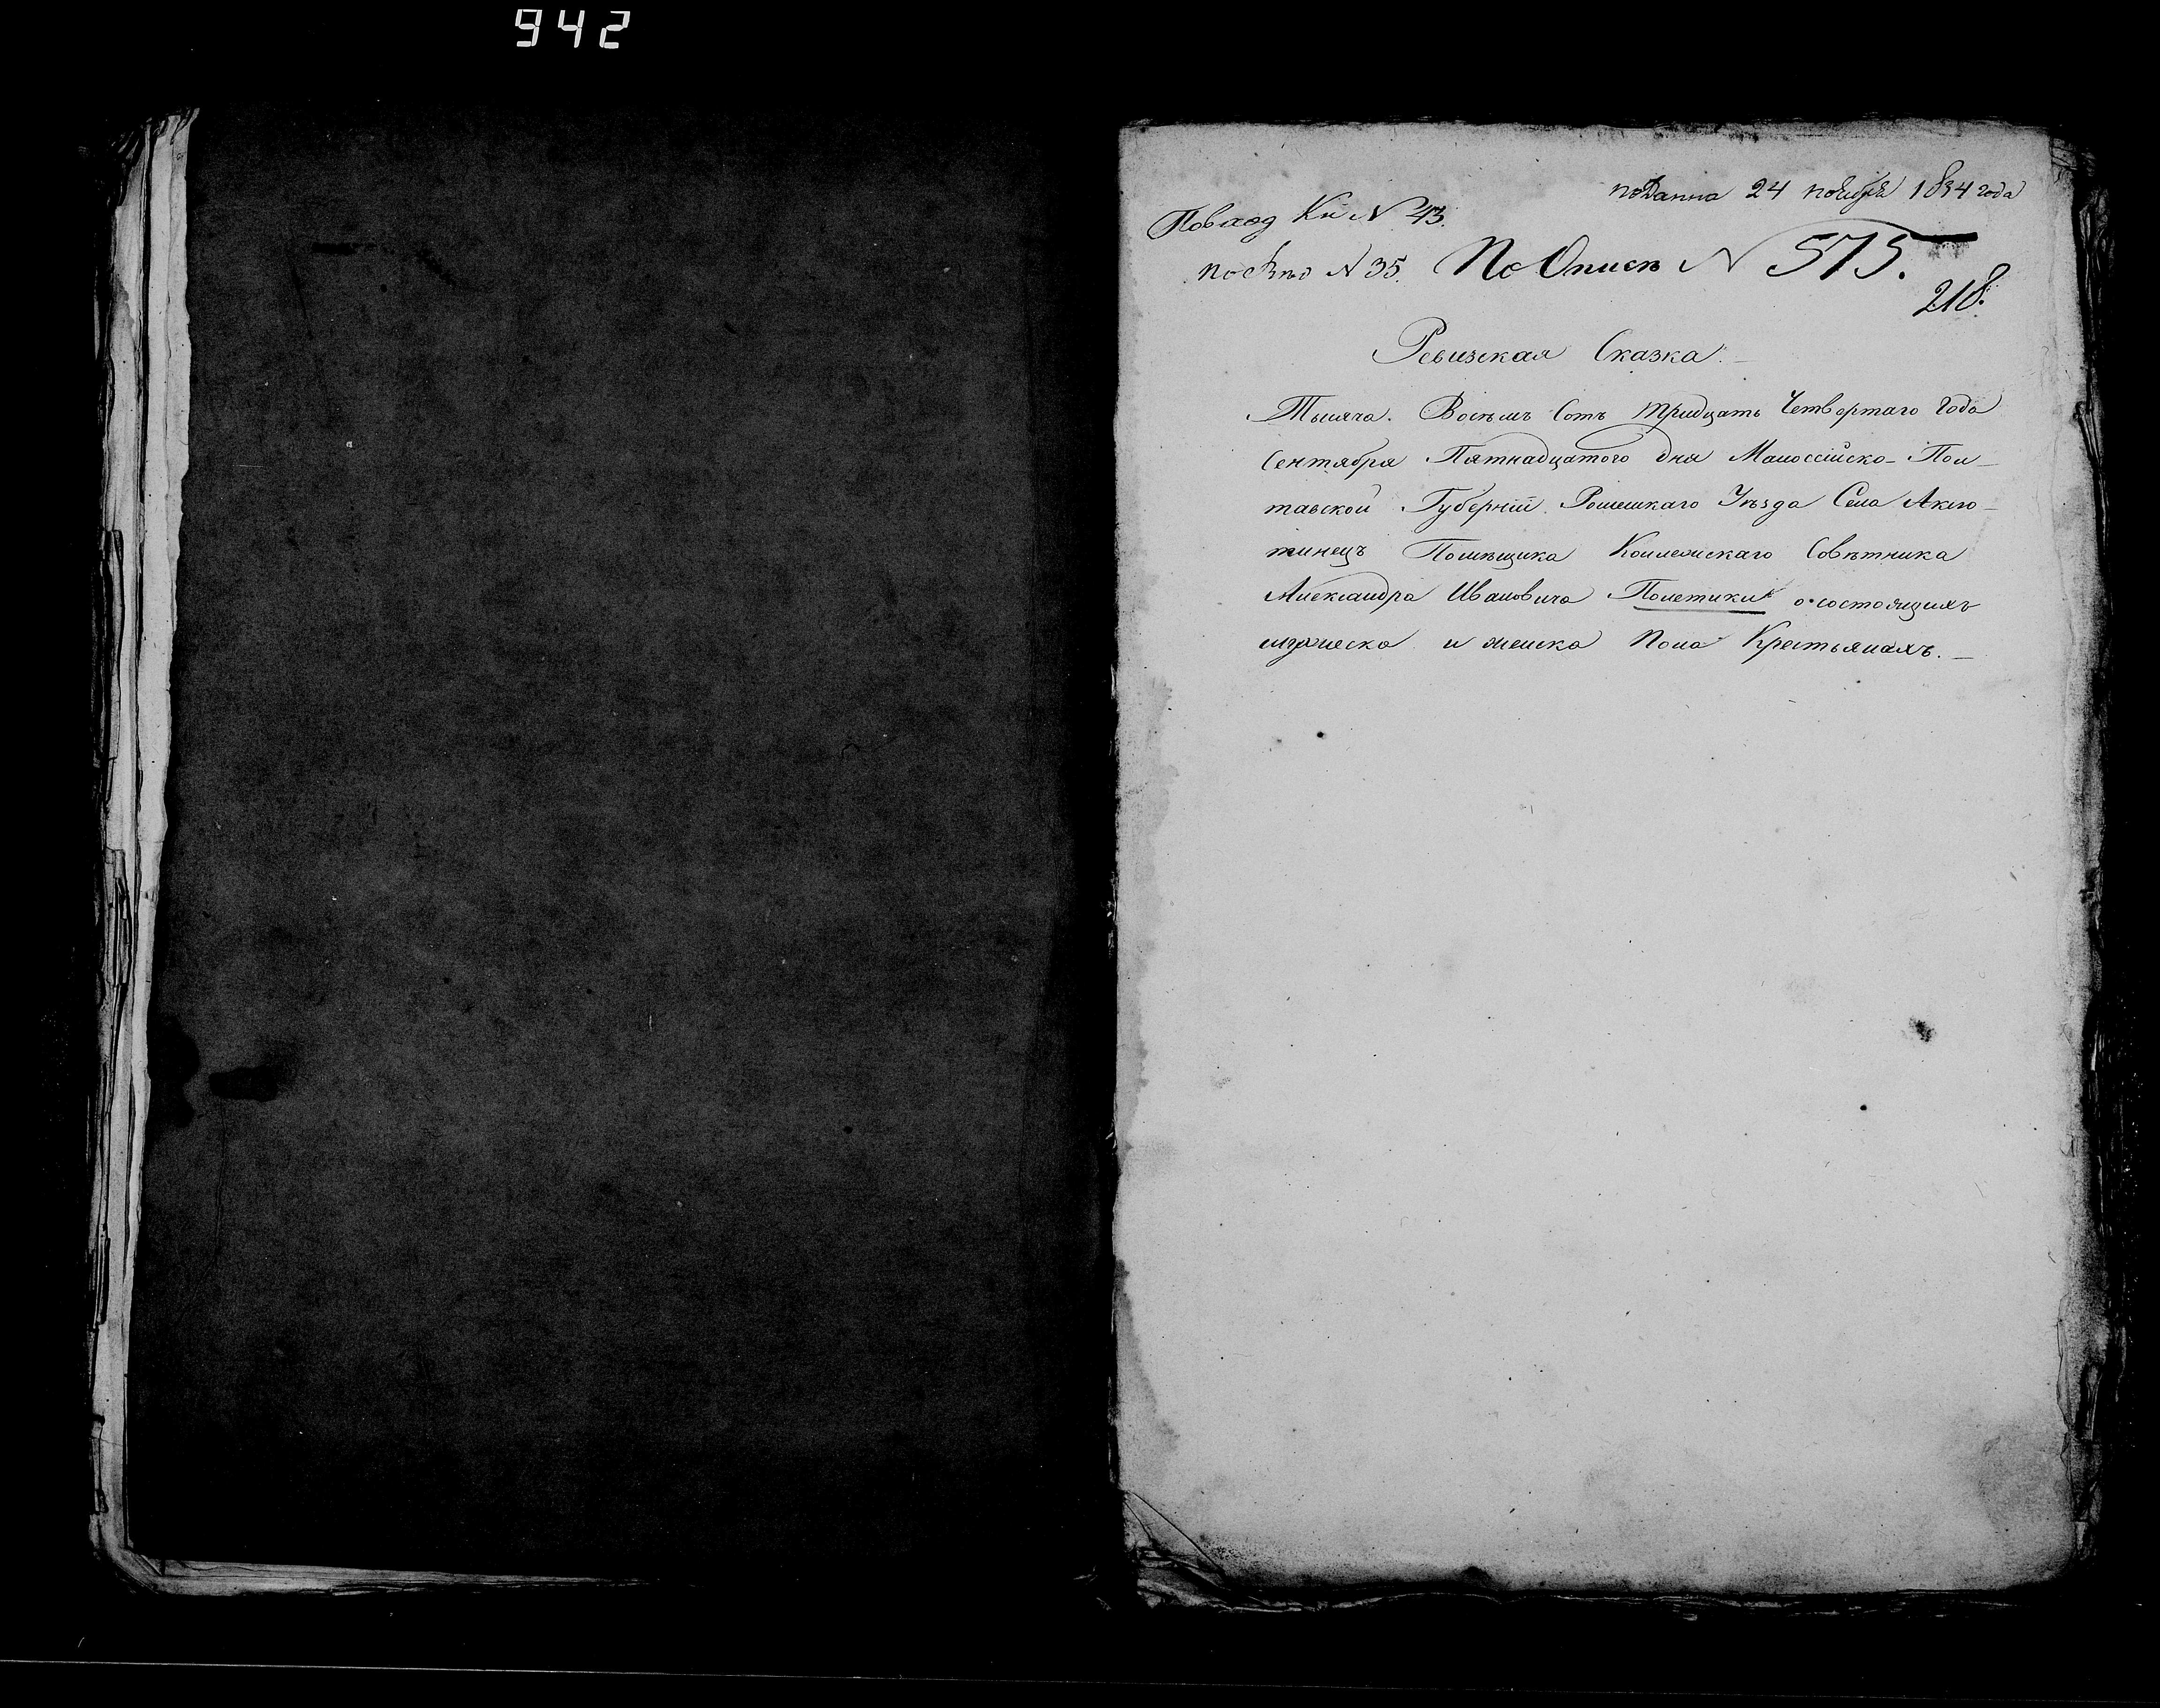 942
поданна 24 ноября 1834 года
По вход Кн N 43.
N 35. По Описи N 575.
218.
Ревизская Сказка.
Тысяча. Восемь Сотъ тридцать Четвертаго Года
Сентября Пятнадцатого дня Малоссійско- Пол-
тавской Губерніи. Роменскаго Уезда Села Аксю-
тинецъ Помещика Коллежскаго Советника
Александра Ивановича Полетики о состоящихъ
мужеска и женска Пола Крестьянахъ.